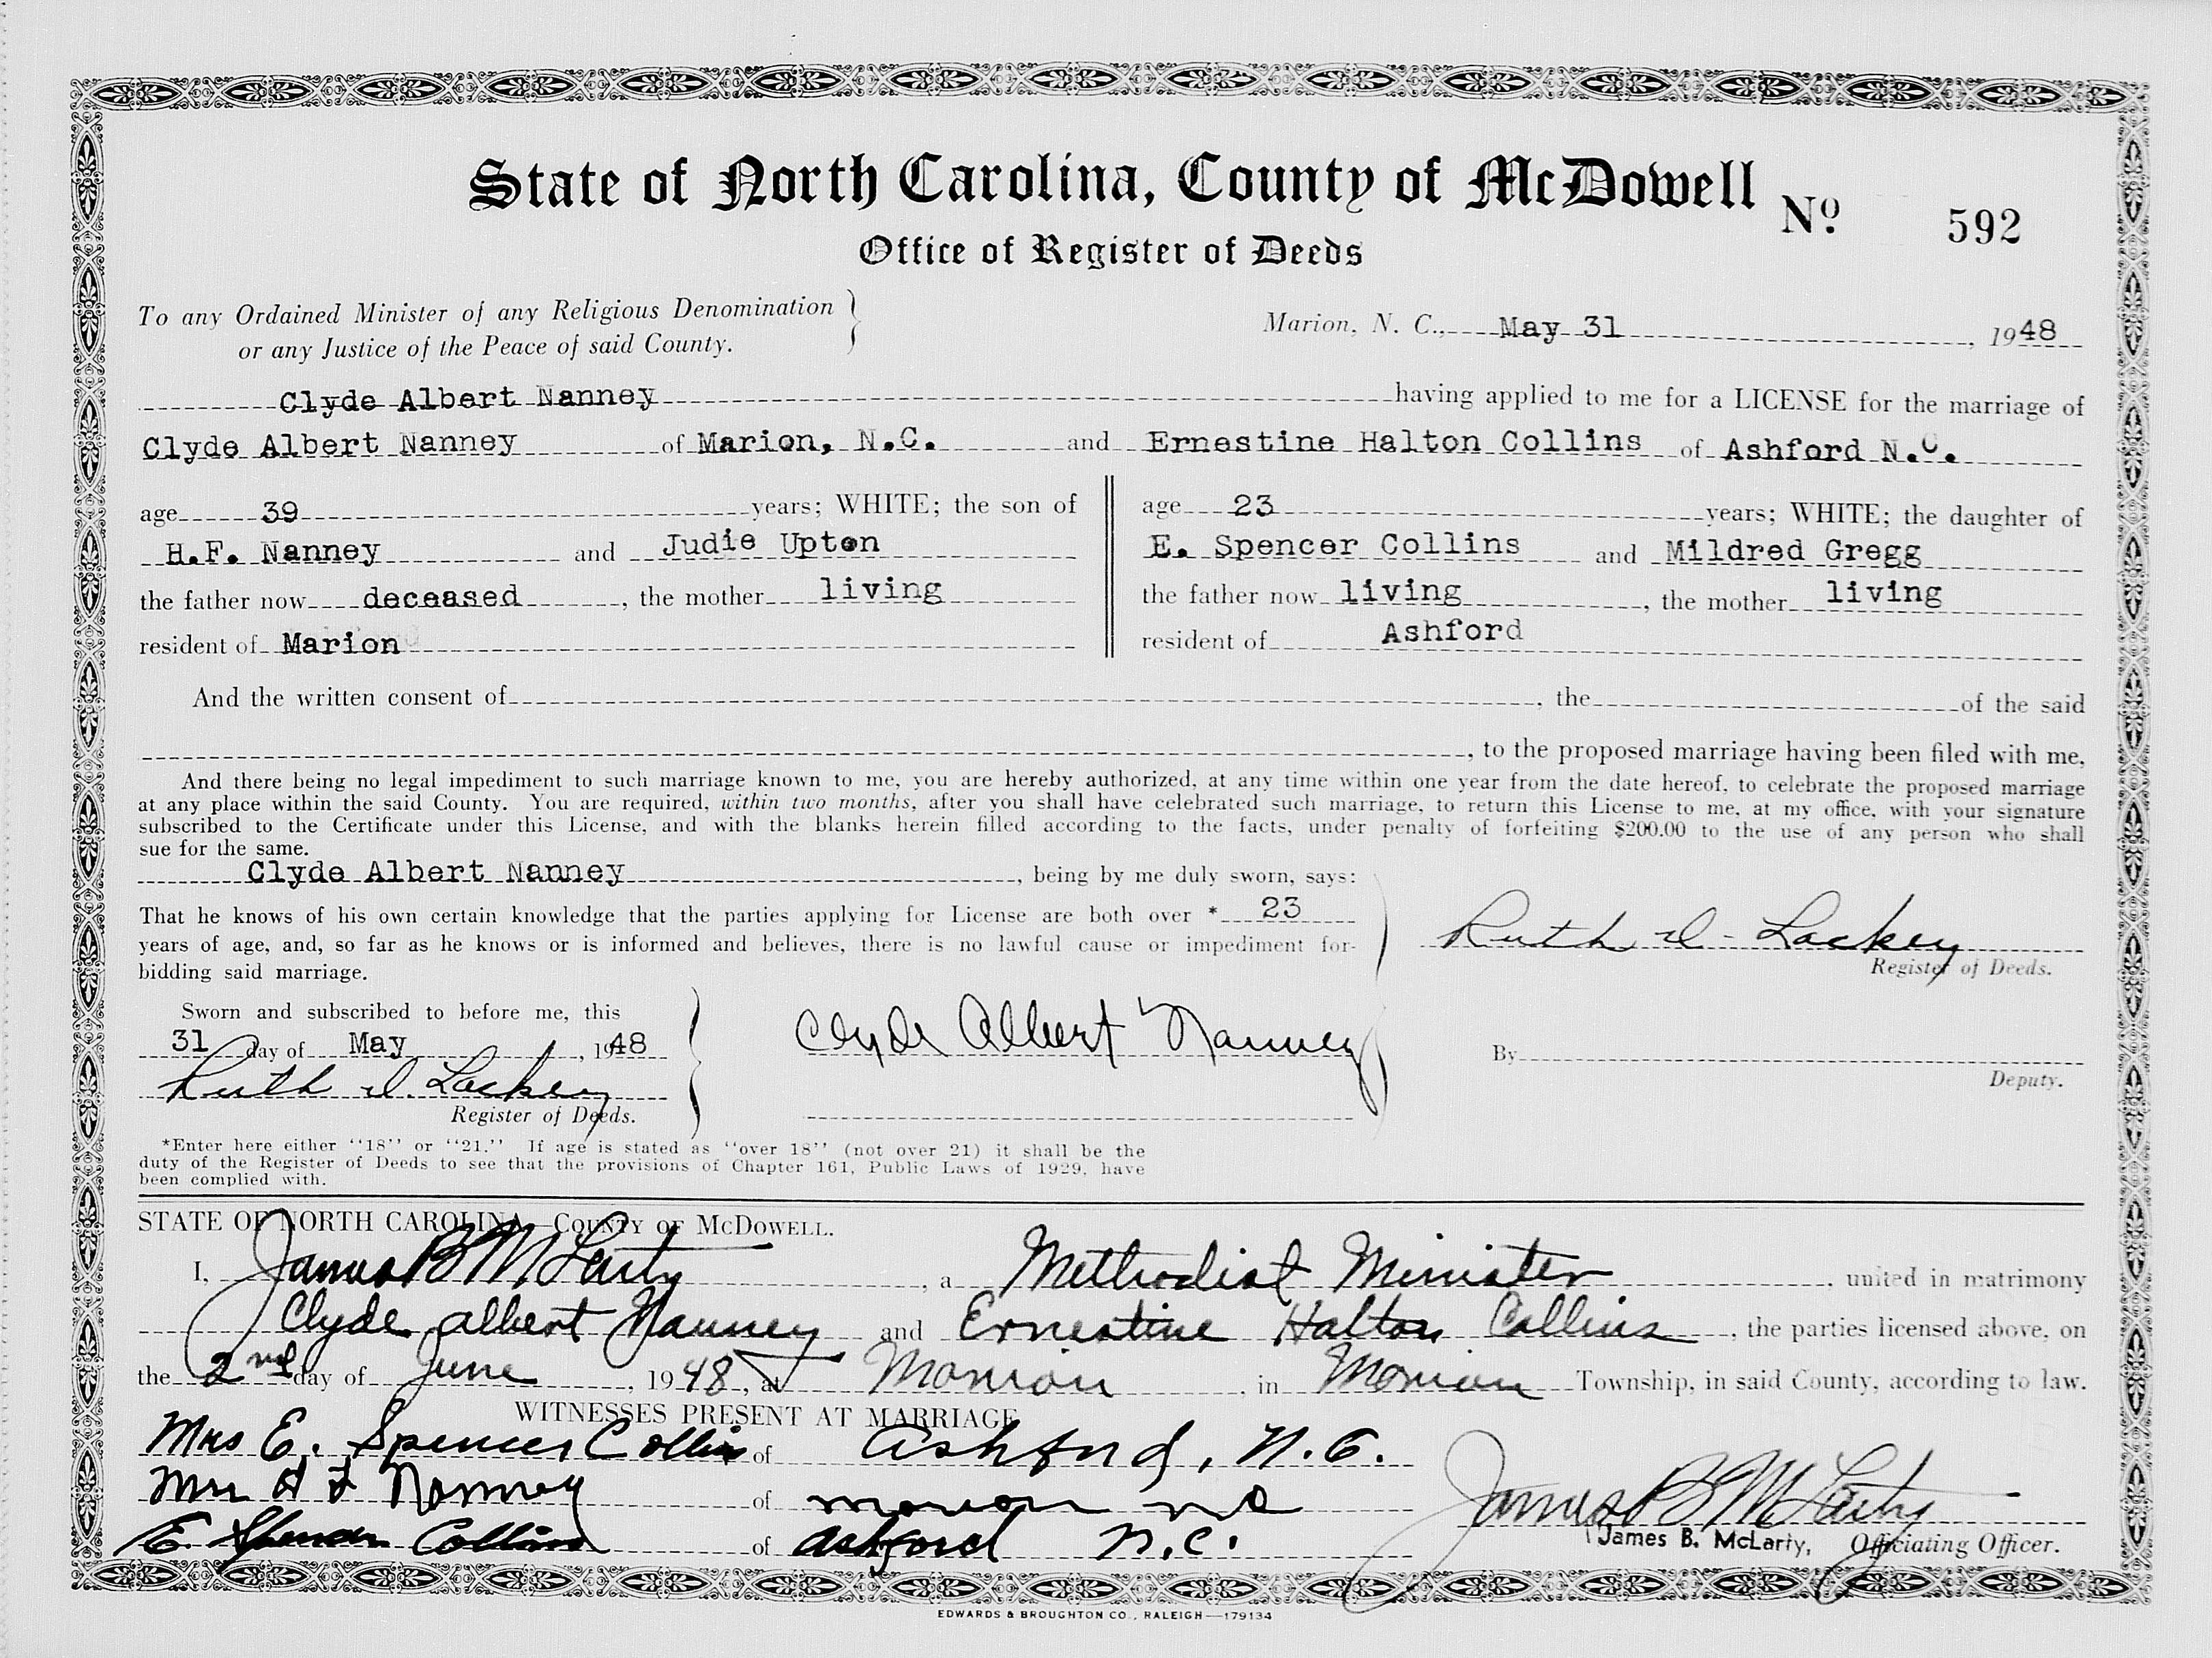 State of North Carolina, County of McDowell Nº 592
Office of Register of Deeds
To any Ordained Minister of any Religious Denomination
or any Justice of the Peace of said County.
Marion, N. C., May 31, 1948
Clyde Albert Nanney having applied to me for a LICENSE for the marriage of
Clyde Albert Nanney of Marion, N.C. and Ernestine Halton Collins of Ashford N.C.
age 39 years; WHITE; the son of
H.F. Nanney and Judie Upton
the father now deceased, the mother living
resident of Marion
age 23 years; WHITE; the daughter of
E. Spencer Collins and Mildred Gregg
the father now living, the mother living
resident of Ashford
And the written consent of, the of the said
, to the proposed marriage having been filed with me,
And there being no legal impediment to such marriage known to me, you are hereby authorized, at any time within one year from the date hereof, to celebrate the proposed marriage
at any place within the said County. You are required, within two months, after you shall have celebrated such marriage, to return this License to me, at my office, with your signature
subscribed to the Certificate under this License, and with the blanks herein filled according to the facts, under penalty of forfeiting $200.00 to the use of any person who shall
sue for the same.
Clyde Albert Nanney, being by me duly sworn, says:
That he knows of his own certain knowledge that the parties applying for License are both over * 23
years of age, and, so far as he knows or is informed and believes, there is no lawful cause or impediment for-
bidding said marriage.
Ruth D. Lackey
Register of Deeds.
Sworn and subscribed to before me, this
31 day of May, 1948
Ruth D. Lackey
Register of Deeds.
Clyde Albert Nanney
By
Deputy.
*Enter here either "18" or "21." If age is stated as "over 18" (not over 21) it shall be the
duty of the Register of Deeds to see that the provisions of Chapter 161, Public Laws of 1929, have
been complied with.
STATE OF NORTH CAROLINA—COUNTY OF MCDOWELL.
I, James B McLarty, a Methodist Minister, united in matrimony
Clyde Albert Nanney and Ernestine Halton Collins, the parties licensed above, on
the 2nd day of June, 1948, at Marion, in Marion Township, in said County, according to law.
WITNESSES PRESENT AT MARRIAGE
Mrs E. Spencer Collins of Ashford, N.C.
Mrs H F Nanney of Marion NC
E. Spencer Collins of Ashford N.C.
James B McLarty
James B. McLarty, Officiating Officer.
EDWARDS & BROUGHTON CO., RALEIGH—179134